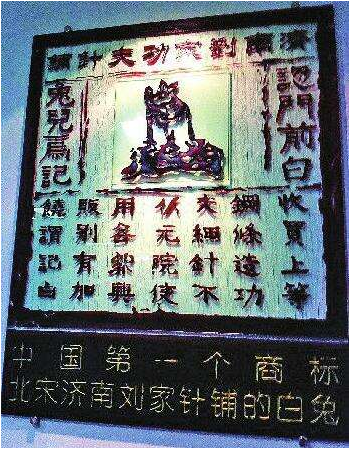 濟南劉家功夫針鋪
認門前白
兔兒爲記
收買上等
鋼條造功
夫細針不
院使
用
販别有加
饒謂記白
中国第一个商标
北宋济南刘家针铺的白兔